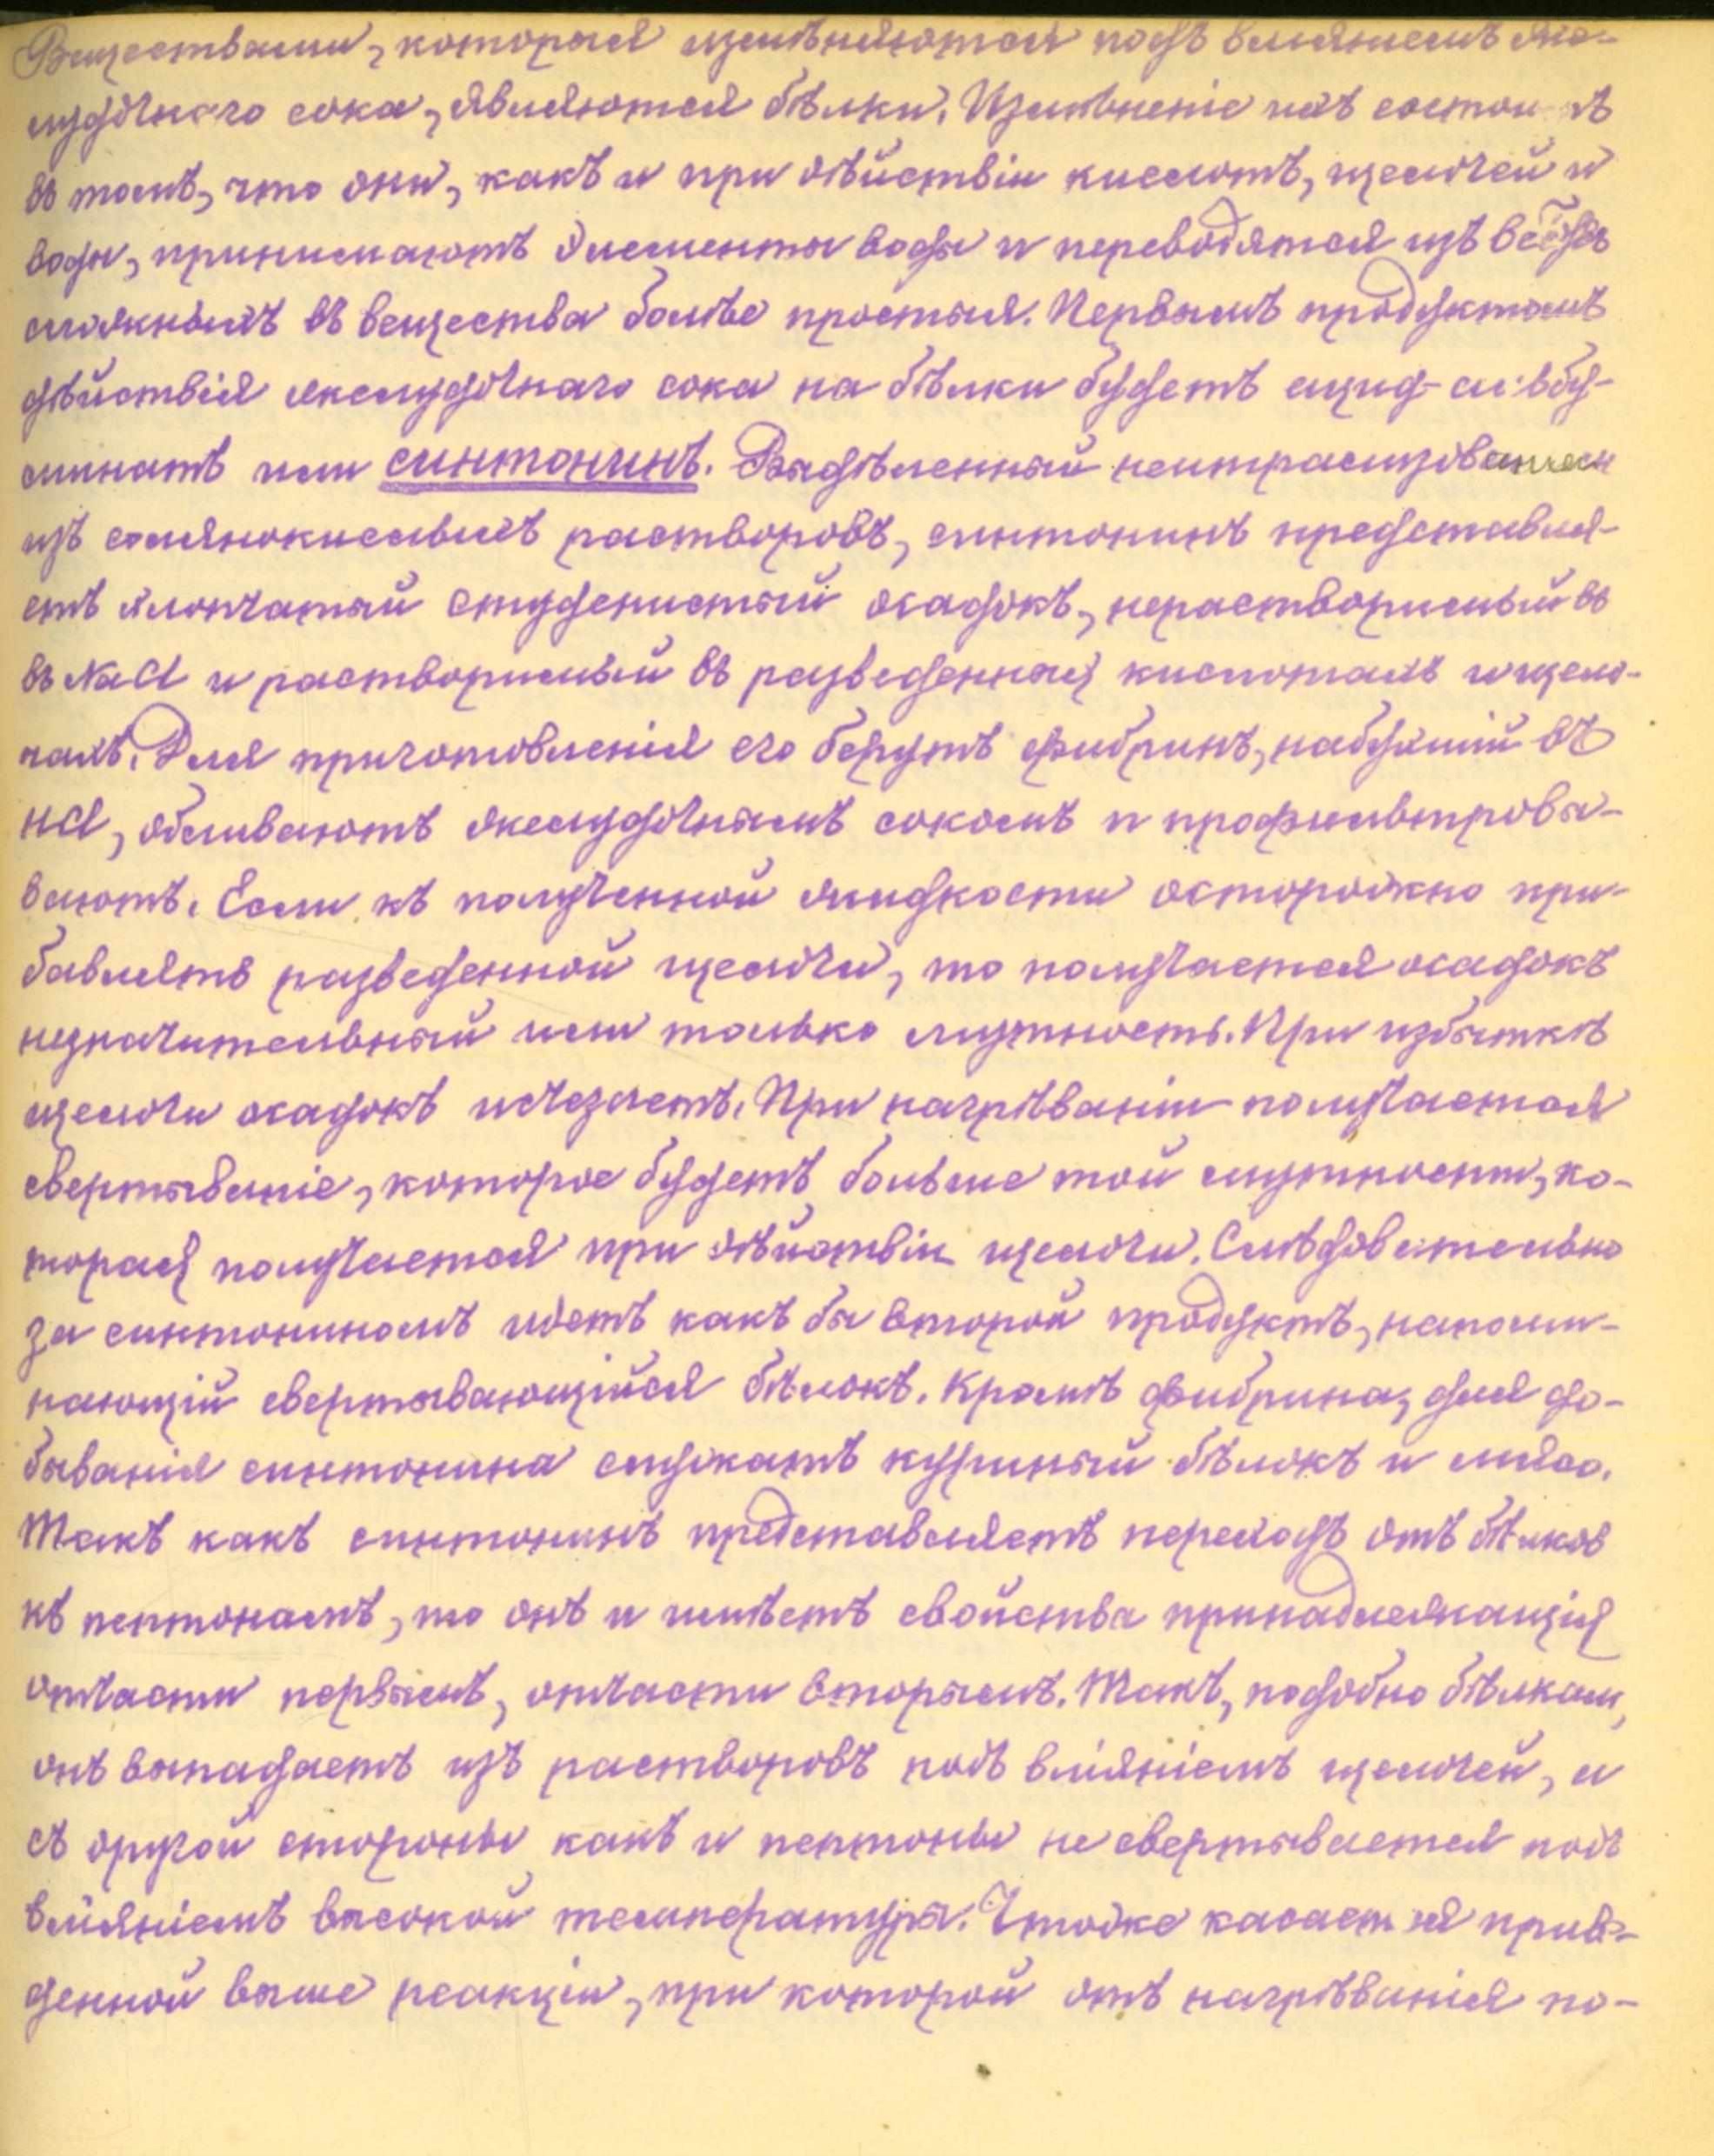 Веществами, которыя измѣняются подъ вліянiемъ же-
лудочнаго сока, являются бѣлки. Измѣненіе ихъ состоитъ
въ томъ, что они, какъ и при дѣйствіи кислотъ, щелочей и
воды, принимаютъ элементы воды и переводятся изъ веществъ
сложныхъ въ вещества болѣе простыя. Первымъ продуктомъ
дѣйствія желудочнаго сока на бѣлки будетъ ацид-альбу-
минатъ или синтонинъ. Выдѣленный нейтрализованіем
изъ солянокислыхъ растворовъ, синтонинъ представля-
етъ хлопчатый студенистый осадокъ, нерастворимый въ
въ NaCl и растворимый въ разведенныхъ кислотахъ и щело-
чахъ. Для приготовленія его берутъ фибринъ, набухшій въ
HCl, обливаютъ желудочнымъ сокомъ и профильтровы-
ваютъ. Если къ полученной жидкости осторожно при-
бавлять разведенной щелочи, то получается осадокъ
незначительный или только мутность. При избыткѣ
щелочи осадокъ исчезаетъ. При нагрѣваніи получается
свертываніе, которое будетъ больше той мутности, ко-
торая получается при дѣйствіи щелочи. Слѣдовательно
за синтониномъ идетъ какъ бы второй продуктъ, напоми-
нающій свертывающійся бѣлокъ. Кромѣ фибрина, для до-
быванія синтонина служатъ куриный бѣлокъ и мясо.
Такъ какъ синтонинъ представляетъ переходъ отъ бѣлков
къ пептонамъ, то онъ и имѣетъ свойства принадлежащія
отчасти первымъ, отчасти вторымъ. Такъ, подобно бѣлкам,
онъ выпадаетъ изъ растворовъ подъ вліяніемъ щелочей, и
съ другой стороны какъ и пептоны не свертывается подъ
вліяніемъ высокой температуры. Чтоже касается приве-
денной выше реакціи, при которой отъ нагрѣванія по-